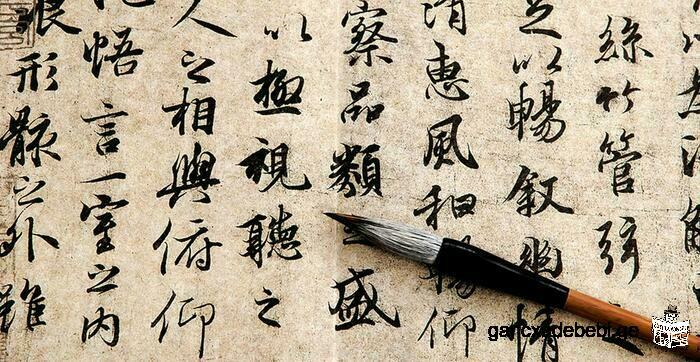 絲竹管弦
足以暢叙幽情
清惠風和暢仰
察品類之盛
以極視聽之
人之相與俯仰
悟言一室之内
浪形骸之外雖
gancxadebebi.ge